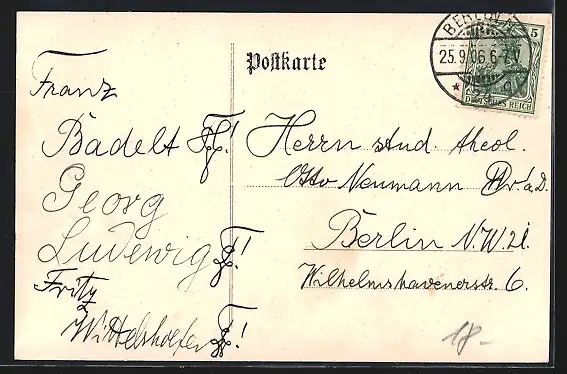 Postkarte
BERLIN
25.9.06.6-7N
5
DEUTSCHES REICH
Franz
Badelt
Georg
Ludewig
Fritz
Wittelshöfer
Herrn stud. theol.
Otto Neumann
Berlin N.W 21.
Wilhelmshavenerstr. 6.
18.-